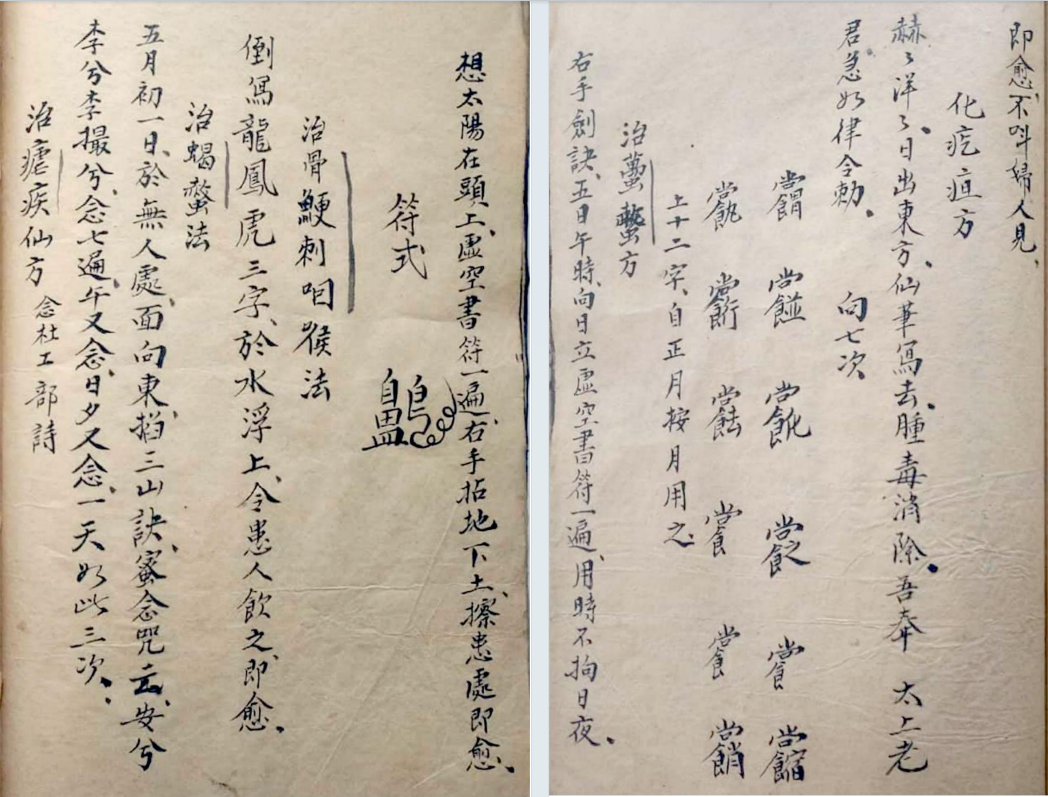 即愈、不呌婦人見、
化疙疸方
赫〻洋〻、日出東方、仙筆寫去、腫毒消除。吾奉 太上老
君急如律令勅。 向七次
上十二字、自正月按月用之、
治蠆螫方
右手劍訣、五日午時、向日立虛空書符一遍、用時不拘日夜。
想太陽在頭上、虛空書符一遍、右手拈地下土、擦患處即愈。
符式
治骨鯁刺咽猴法
倒寫龍鳳虎三字、於水浮上、令患人飲之即愈。
治蝎螫法
五月初一日、於無人處、面向東、掐三山訣、蜜念咒云、安兮
李兮李撮兮、念七遍、午又念、日夕又念、一天如此三次。
治瘧疾仙方 念杜工部詩